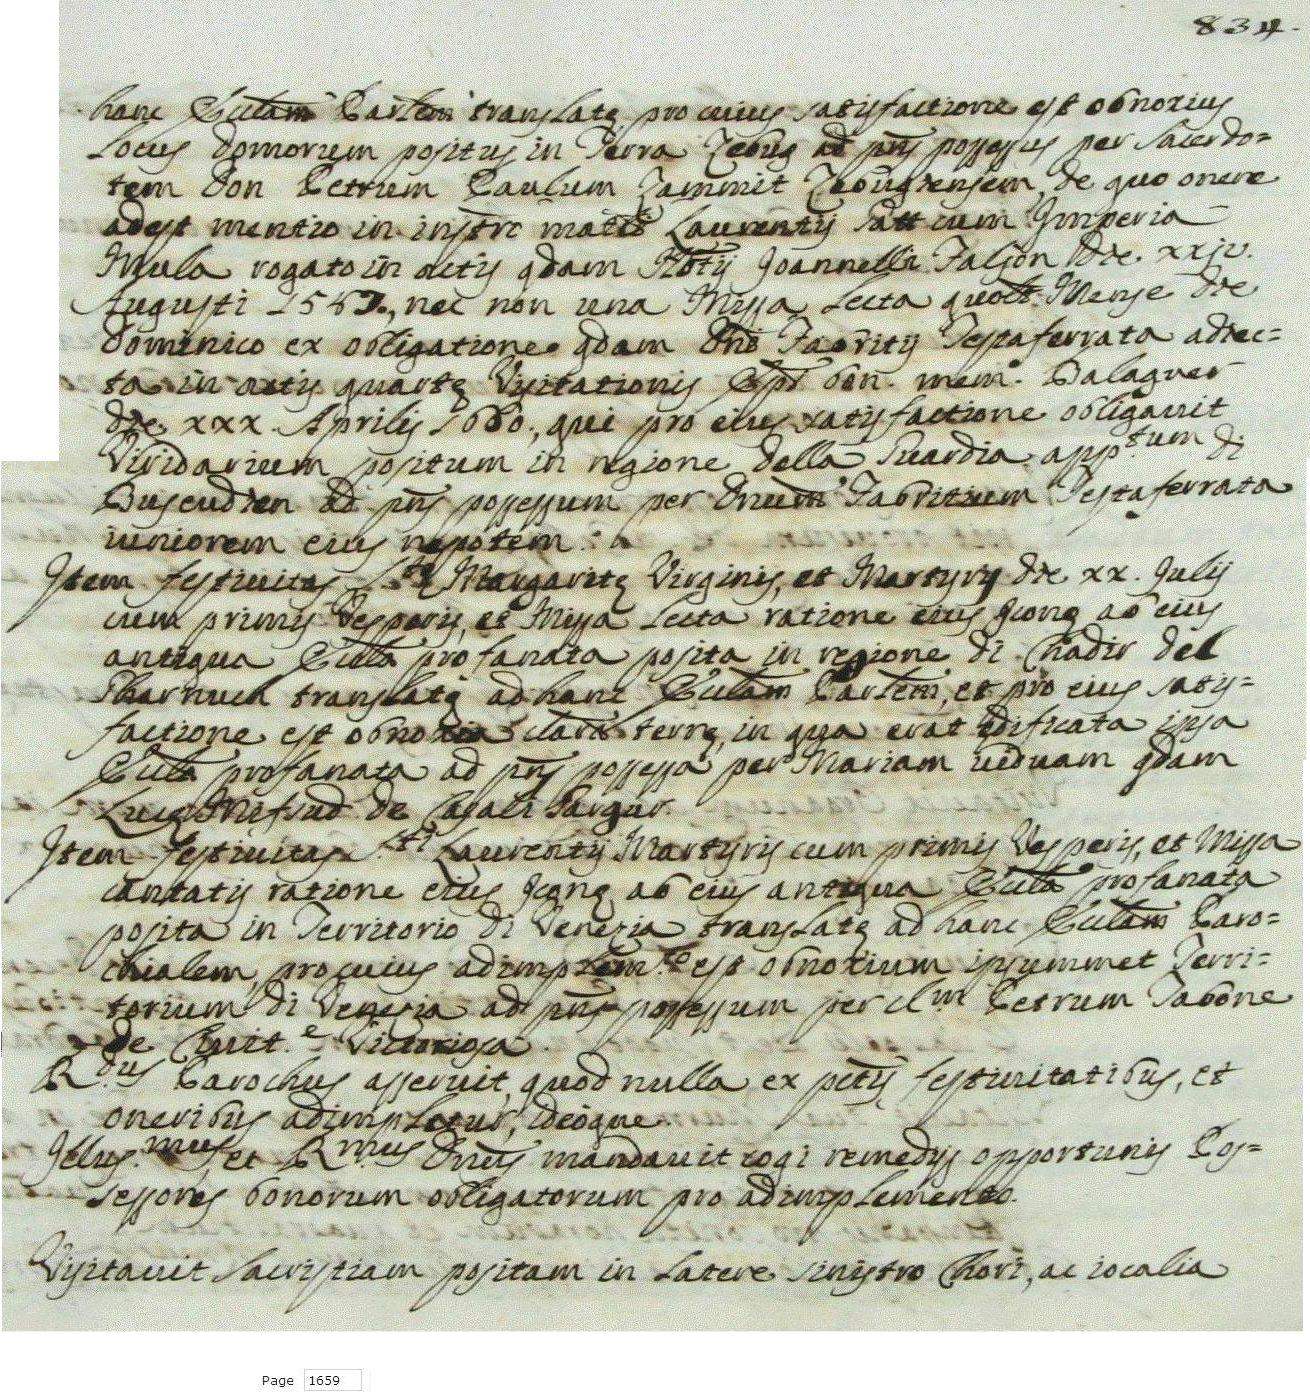 834.
hanc Ecclam Parlem translatę pro cuius satisfactione est obnoxius
Locus domorum positus in Terra Zebug ad pñs possessus per Sacerdo=
tem Don Petrum Paulum Zammit Zebugiensem, de quo onere
adest mentio in instro matli Laurentij Satt cum Imperia
Mula rogato in actis qdam Notij Joannelli Falson die xxiv.
Augusti 1557., nec non una Missa Lecta quolt Mense die
Dominico ex obligatione qdam Dñi Fabritij Testaferrata adiec=
ta in actis quartę Visitationis Epi bon. mem. Balaguer
die xxx Aprilis 1660., qui pro eius satisfactione obligauit
Viridarium positum in regione della Guardia, appᵗᵘᵐ di
Buscudien ad pñs possessum per Dnum Fabritium Testaferrata
iuniorem eius nepotem.
Item festiuitas Sᵗę Margaritę Virginis, et Martyris die xx. Julij
cum primis Vesperis, et Missa Lecta ratione eius Iconę ab eius
antiqua Eccla profanata posita in regione di Chadir del
Gharnuch translatę ad hanc Ecclam Parlem, et pro eius satis=
factione est obnoxia clausᵃ terrę, in qua erat ędificata ipsa
Eccla profanata ad pñs possessa per Mariam uiduam qdam
Lucę Mifsud de Casali Gargur.
Item festiuitas Sᵗⁱ Laurentij Martyris cum primis Vesperis, et Missa
cantatis ratione eius Iconę ab eius antiqua Eccla profanata
posita in Territorio di Venezia translatę ad hanc Ecclam Paro=
chialem, pro cuius adimplemᵗᵒ est obnoxium ipsummet Terri=
torium di Venezia ad pñs possessum per clᵐ Petrum Tabone
de Ciuit.ᵉ Victoriosa
R.ᵈᵘˢ Parochus asseruit, quod nulla ex pctis festiuitatibus, et
oneribus adimpletur, ideoque
Illus.ᵐᵘˢ et Rᵐᵘˢ Dnus mandauit cogi remedijs opportunis Pos=
sessores bonorum obligatorum pro adimplemento.
Visitauit Sacristiam positam in Latere sinistro Chori, ac iocalia
Page 1659